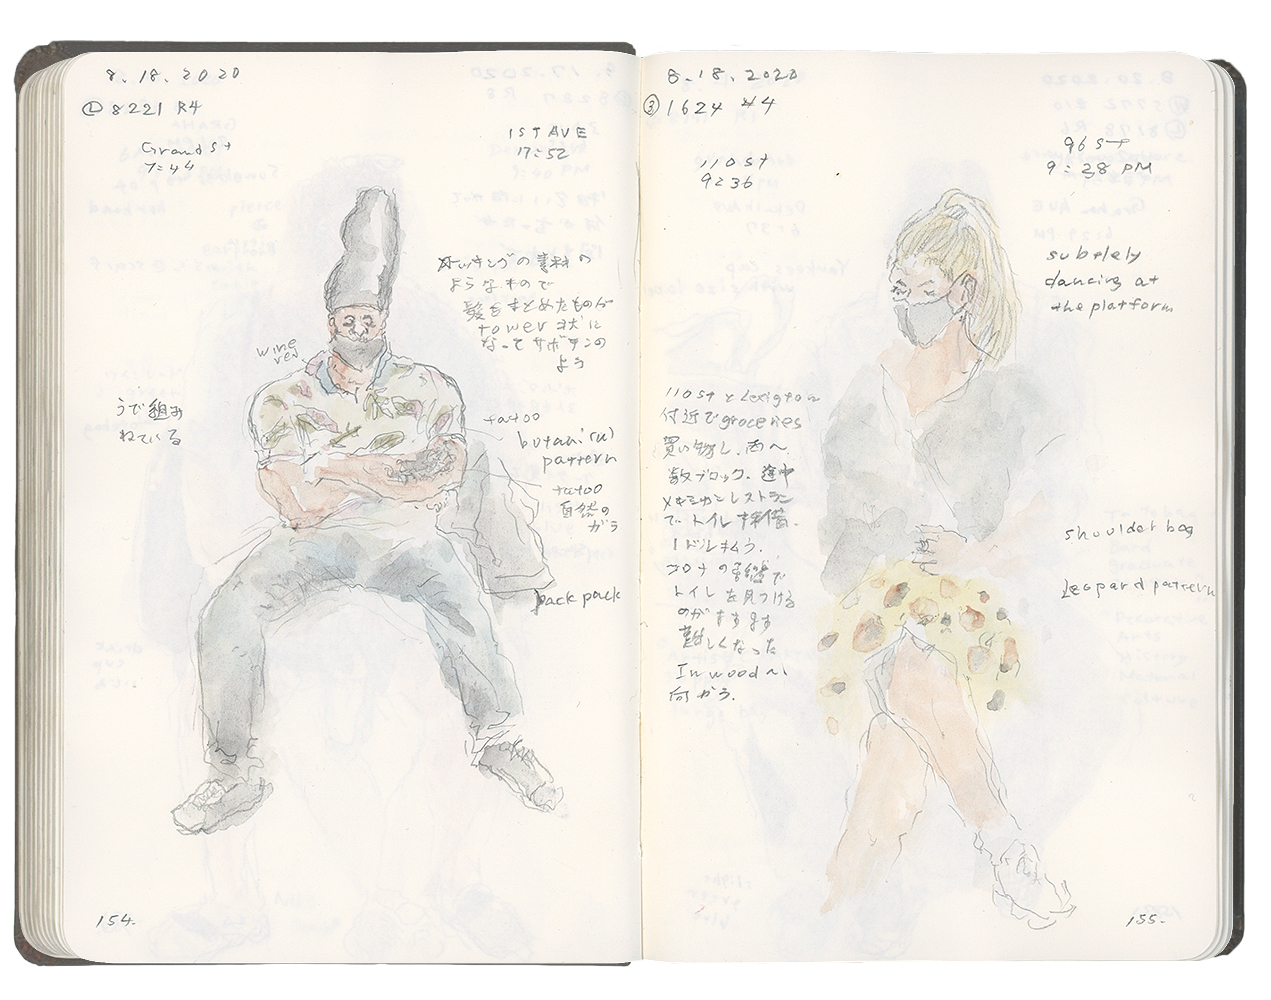 8.18.2020
Ⓛ 8221 R4
Grand St
7:44
1ST AVE
17:52
ストッキングの素材の
ようなもので
髪をまとめたものが
tower状に
なってサボテンの
よう
wine
red
うで組み
ねている
tatoo
botanical
pattern
tatoo
自然の
ガラ
back pack
154.
8.18.2020
③ 1624 #4
110 St
9:36
96 St
9:38 PM
subtlely
dancing at
the platform
110 St と Lexigton
付近でgroceries
買い物し、西へ
数ブロック、途中
メキシカンレストラン
で、トイレ拝借、
1ドル払う。
コロナの影響で
トイレを見つける
のがますます
難しくなった
Inwoodへ
向かう。
shoulder bag
Leopard pattern
155.